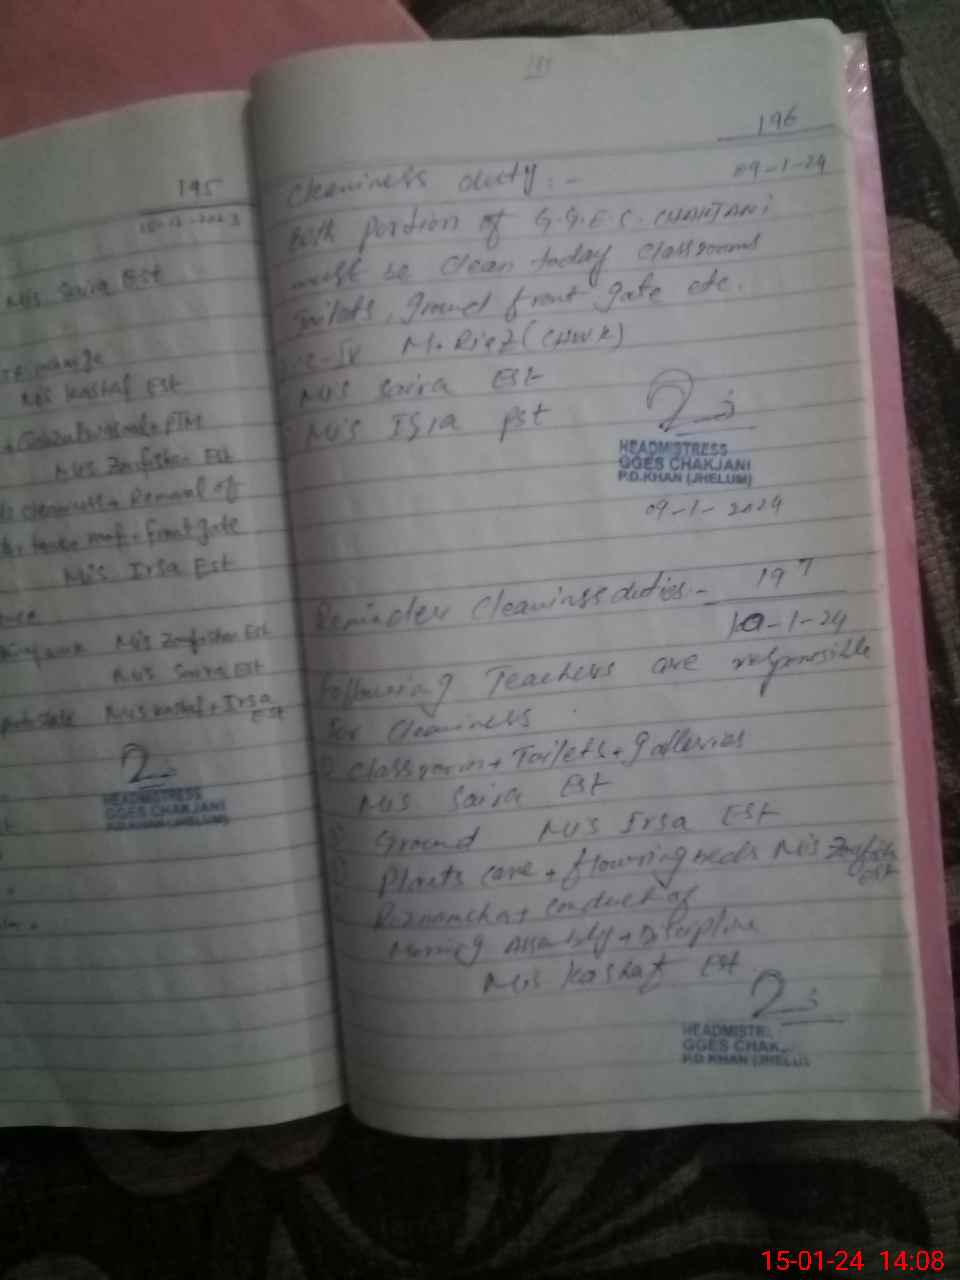 195
Mis Saira Est
Mis Kashaf Est
+ PTM
Mis Zarfishan Est
cleaniness + Removal of
+ front gate
Mis Irsa Est
Mis Zarfishan Est
Mis Saira Est
Mis Kashaf + Irsa
Est
HEADMISTRESS
GGES CHAKJANI
P.D.KHAN (JHELUM)
196
Cleaniness duty :-
09-1-24
Both portion of G.G.E.S. CHAKJANI
must be clean today classrooms
toilets, ground front gate etc.
M. Riaz (
Mis Saira Est
Mis Isra pst
HEADMISTRESS
GGES CHAKJANI
P.D.KHAN (JHELUM)
09-1-2024
Reminder Cleaninss duties :-
197
10-1-24
Following Teachers are responsible
for Cleaniness
Classroom + Toilets + galleries
Mis Saira Est
Ground Mis Irsa Est
Plants care + flowring beds Mis Zarfishan
Est
Roznamcha + conduct of
Morning Assembly + Discipline
Mis Kashaf Est
HEADMISTR
GGES CHAK
P.D.KHAN (JHELU
15-01-24 14:08